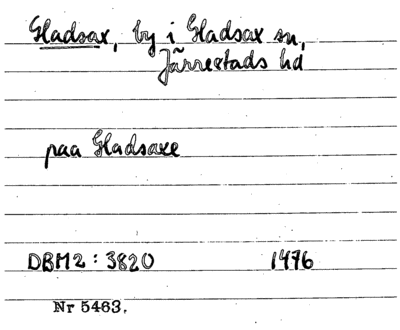 Gladsax, by i Gladsax sn,
Järrestads hd
paa Gladsaxe
DBM2: 3820 1476
Nr 5463.